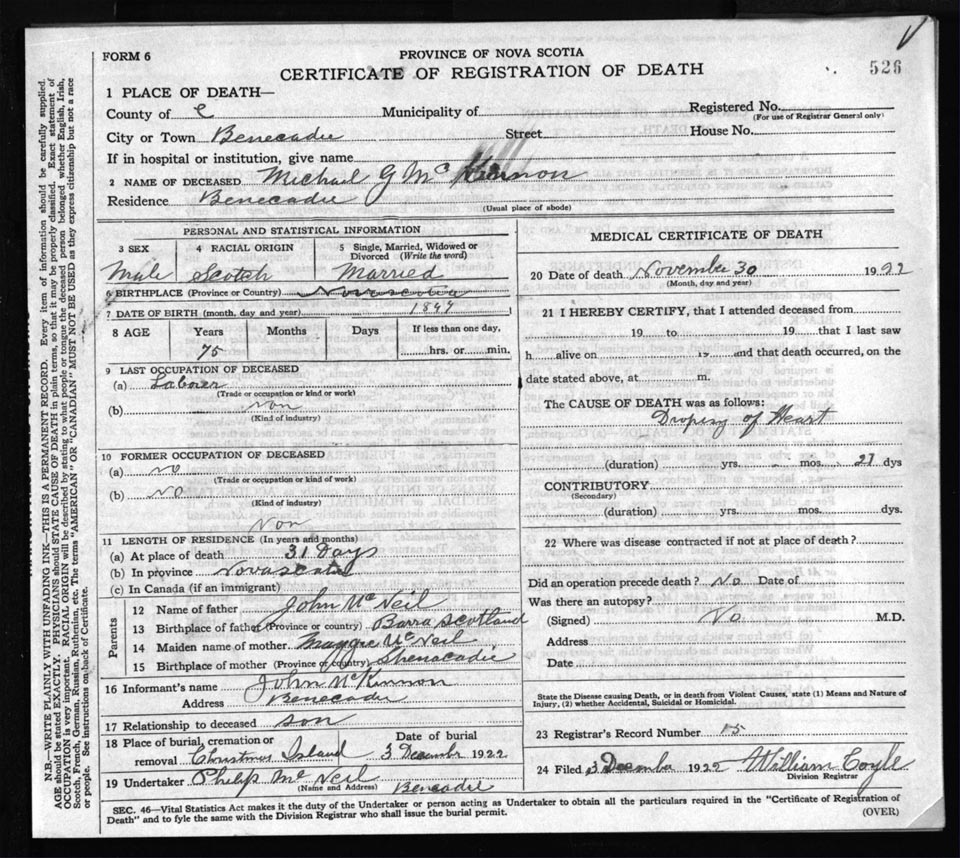 FORM 6
PROVINCE OF NOVA SCOTIA
CERTIFICATE OF REGISTRATION OF DEATH
526
1 PLACE OF DEATH—
County of C Municipality of Registered No.
(For use of Registrar General only)
City or Town Benecadie Street House No.
If in hospital or institution, give name
2 NAME OF DECEASED Michael G McKinnon
Residence Benecadie
(Usual place of abode)
PERSONAL AND STATISTICAL INFORMATION
3 SEX 4 RACIAL ORIGIN 5 Single, Married, Widowed or
Divorced (Write the word)
Male Scotch Married
6 BIRTHPLACE (Province or Country) Novascotia
7 DATE OF BIRTH (month, day and year) 1847
8 AGE Years Months Days If less than one day,
75 hrs. or min.
9 LAST OCCUPATION OF DECEASED
(a) Laborer
(Trade or occupation or kind or work)
(b) Non
(Kind of industry)
10 FORMER OCCUPATION OF DECEASED
(a) No
(Trade or occupation or kind of work)
(b) No
(Kind of industry)
Non
11 LENGTH OF RESIDENCE (In years and months)
(a) At place of death 31 Days
(b) In province Novascotia
(c) In Canada (if an immigrant)
Parents
12 Name of father John McNeil
13 Birthplace of father (Province or country) Barra Scotland
14 Maiden name of mother Maggie McNeil
15 Birthplace of mother (Province or country) Shenacadie
16 Informant's name John McKinnon
Address Benecadie
17 Relationship to deceased son
18 Place of burial, cremation or Date of burial
removal Christmas Island 3 December 1922
19 Undertaker Philip McNeil Benecadie
(Name and Address)
MEDICAL CERTIFICATE OF DEATH
20 Date of death November 30 1922
(Month, day and year)
21 I HEREBY CERTIFY, that I attended deceased from
19 to 19 that I last saw
h alive on 19 and that death occurred, on the
date stated above, at m.
The CAUSE OF DEATH was as follows:
Dropesy of Heart
(duration) yrs. mos. 27 dys
CONTRIBUTORY
(Secondary)
(duration) yrs. mos. dys.
22 Where was disease contracted if not at place of death?
Did an operation precede death? No Date of
Was there an autopsy?
(Signed) No M.D.
Address
Date
State the Disease causing Death, or in death from Violent Causes, state (1) Means and Nature of
Injury, (2) whether Accidental, Suicidal or Homicidal.
23 Registrar's Record Number 15
24 Filed 3 December 1922 William Coyle
Division Registrar
SEC. 46—Vital Statistics Act makes it the duty of the Undertaker or person acting as Undertaker to obtain all the particulars required in the "Certificate of Registration of
Death" and to fyle the same with the Division Registrar who shall issue the burial permit.
(OVER)
N.B.—WRITE PLAINLY WITH UNFADING INK—THIS IS A PERMANENT RECORD. Every item of information should be carefully supplied.
AGE should be stated EXACTLY. PHYSICIANS should STATE CAUSE OF DEATH in plain terms, so that it may be properly classified. Exact statement of
OCCUPATION is very important. RACIAL ORIGIN will be described by stating to what people or tongue the deceased person belonged whether English, Irish,
Scotch, French, German, Russian, Ruthenian, etc. The terms "AMERICAN" OR "CANADIAN" MUST NOT BE USED as they express citizenship but not a race
or people. See instructions on back of Certificate.